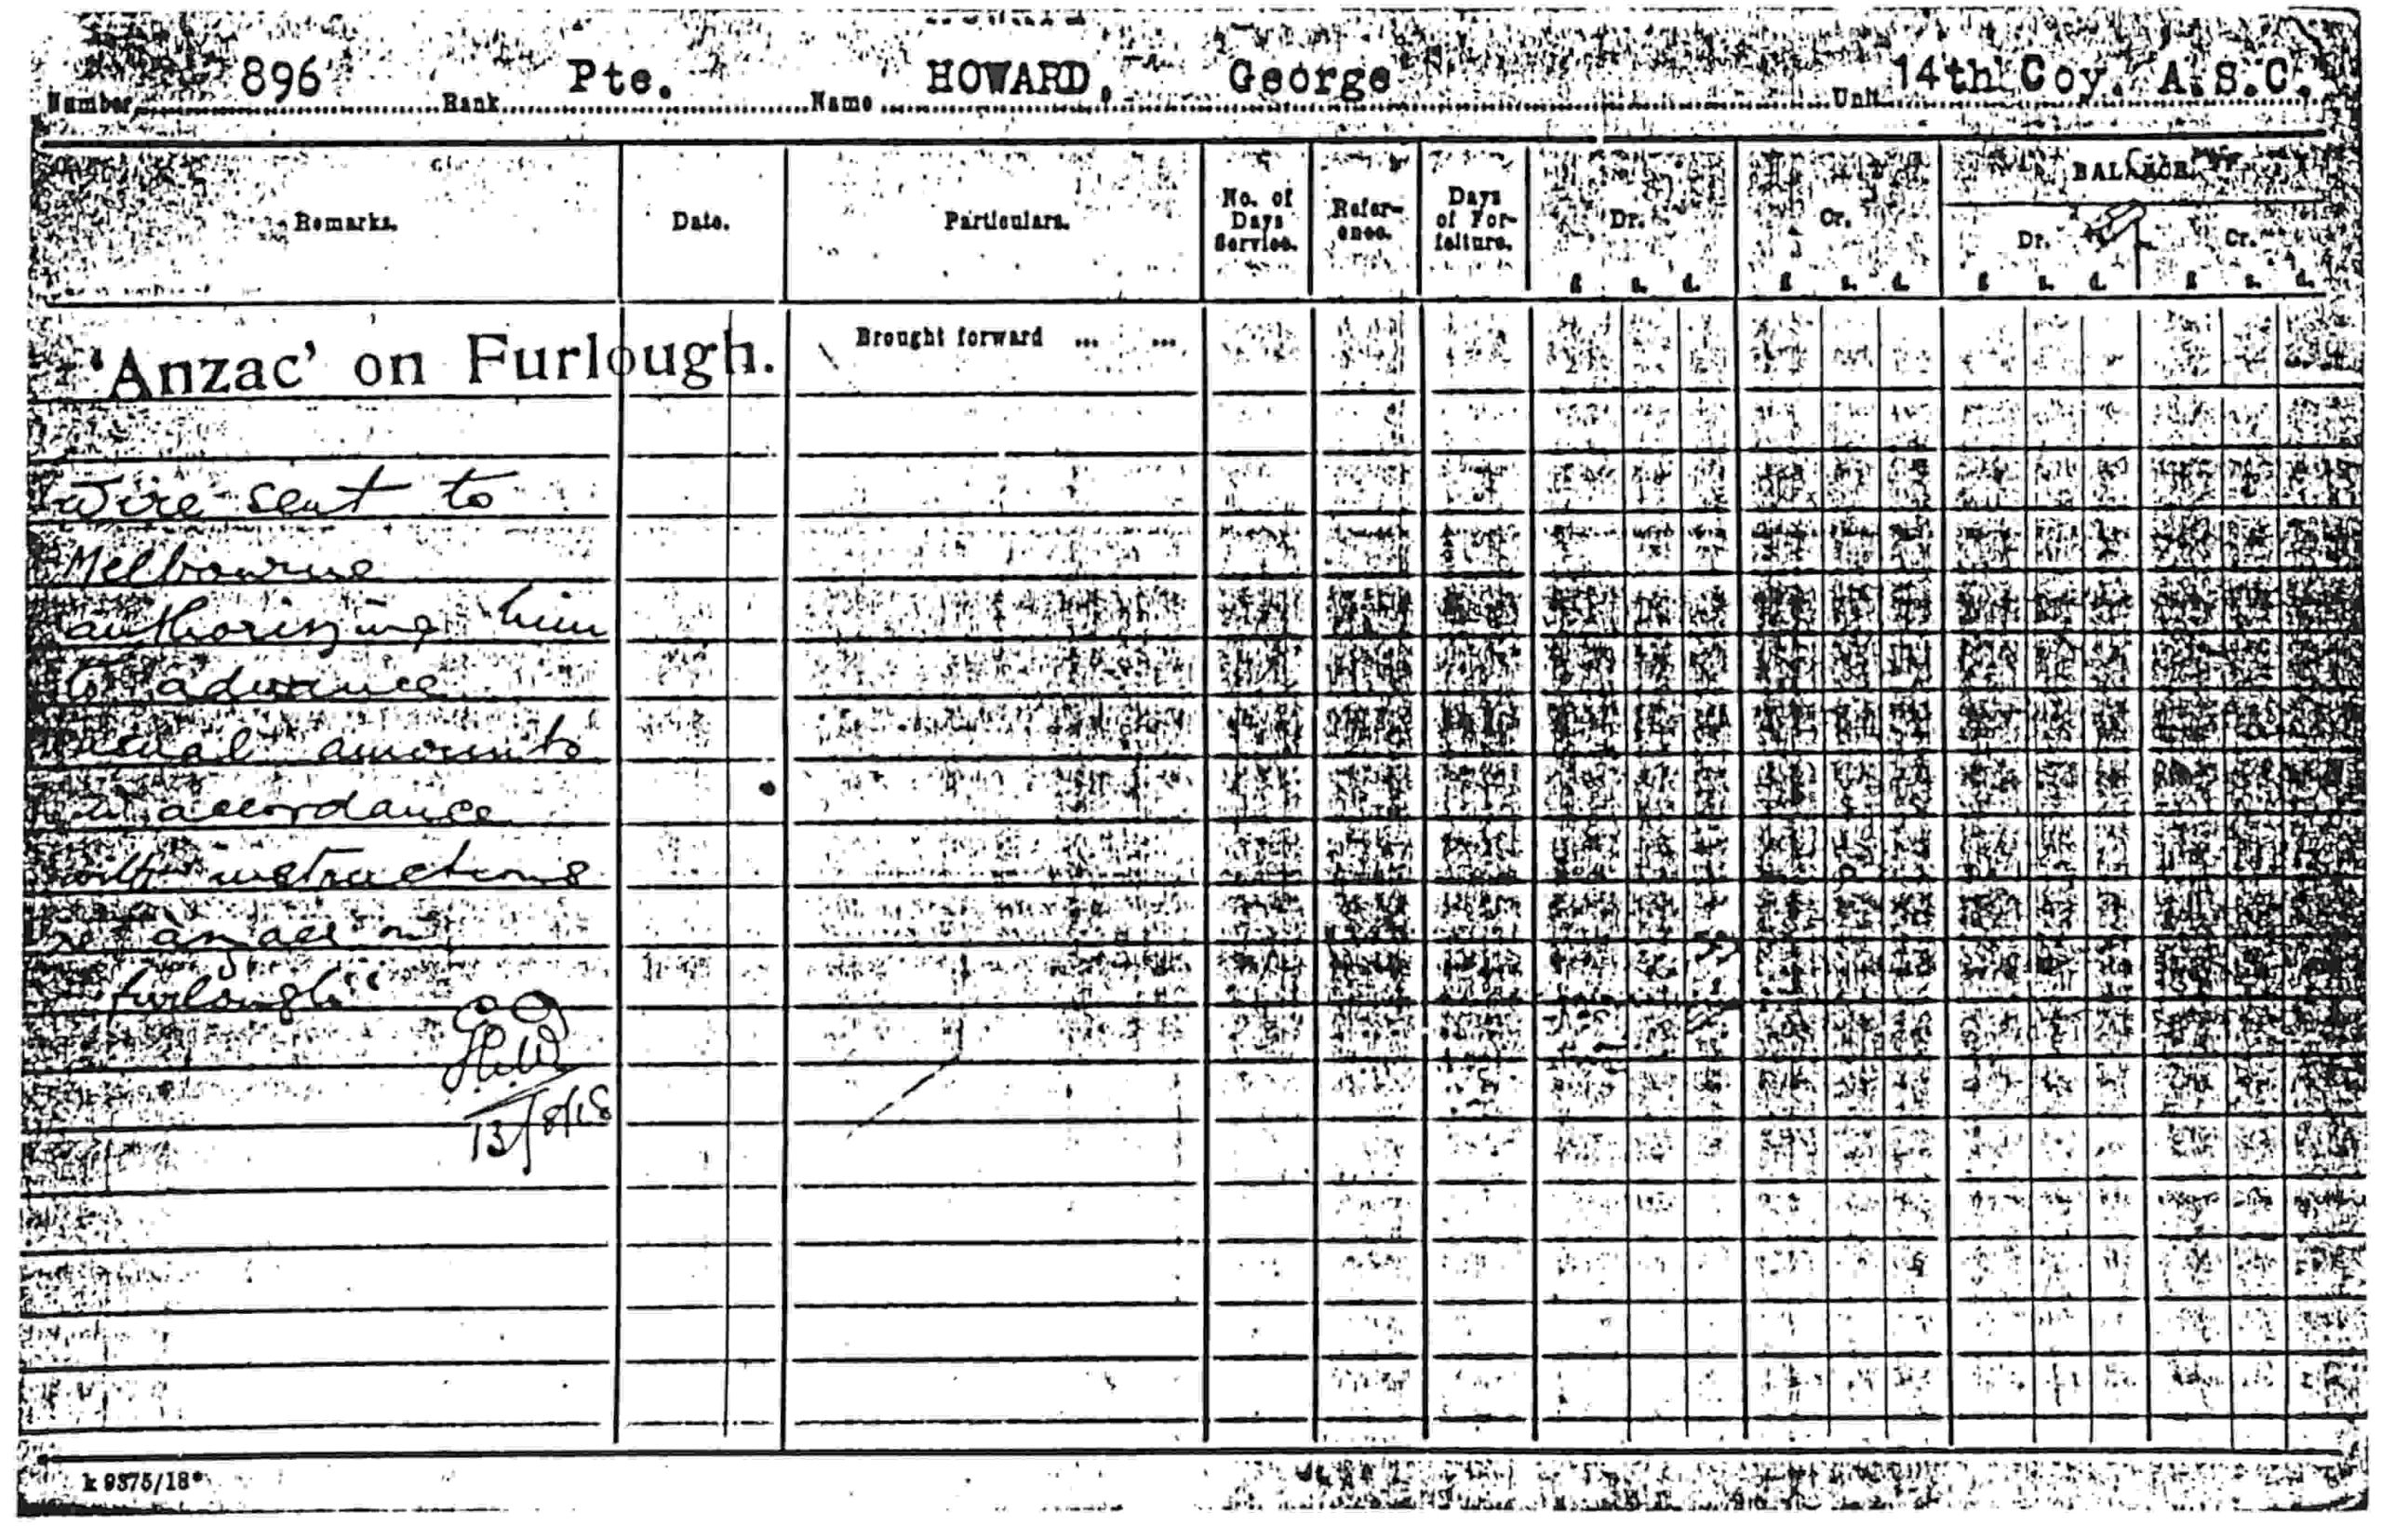 Number 896 Rank Pte. Name HOWARD, George Unit 14th Coy. A.S.C.
Remarks. Date. Particulars. No. of Days Service. Refer-ence. Days of For-feiture. Dr. Cr. BALANCE. Dr. Cr.
£ s. d. £ s. d. £ s. d. £ s. d.
'Anzac' on Furlough. Brought forward ... ...
Wire sent to
Melbourne
authorizing him
to advance
usual amounts
in accordance
with instructions
re anzac on
furlough"
H.W
13/8/18
k 9375/18*